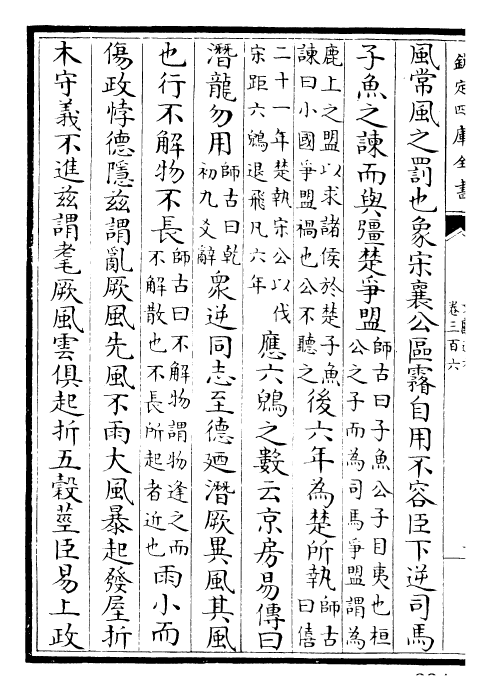 欽定四庫全書
卷三百六
風常風之罰也象宋襄公區霿自用不容臣下逆司馬
子魚之諫而與彊楚爭盟
師古曰子魚公子目夷也桓
公之子而為司馬爭盟謂為
鹿上之盟以求諸侯於楚子魚
諫曰小國爭盟禍也公不聽之
後六年為楚所執
師古
曰僖
二十一年楚執宋公以伐
宋距六鶂退飛凡六年
應六鶂之數云京房易傳曰
潛龍勿用
師古曰乾
初九爻辭
衆逆同志至德廼潛厥異風其風
也行不解物不長
師古曰不解物謂物逢之而
不解散也不長所起者近也
雨小而
傷政悖德隱茲謂亂厥風先風不雨大風暴起發屋折
木守義不進茲謂耄厥風雲俱起折五穀莖臣易上政